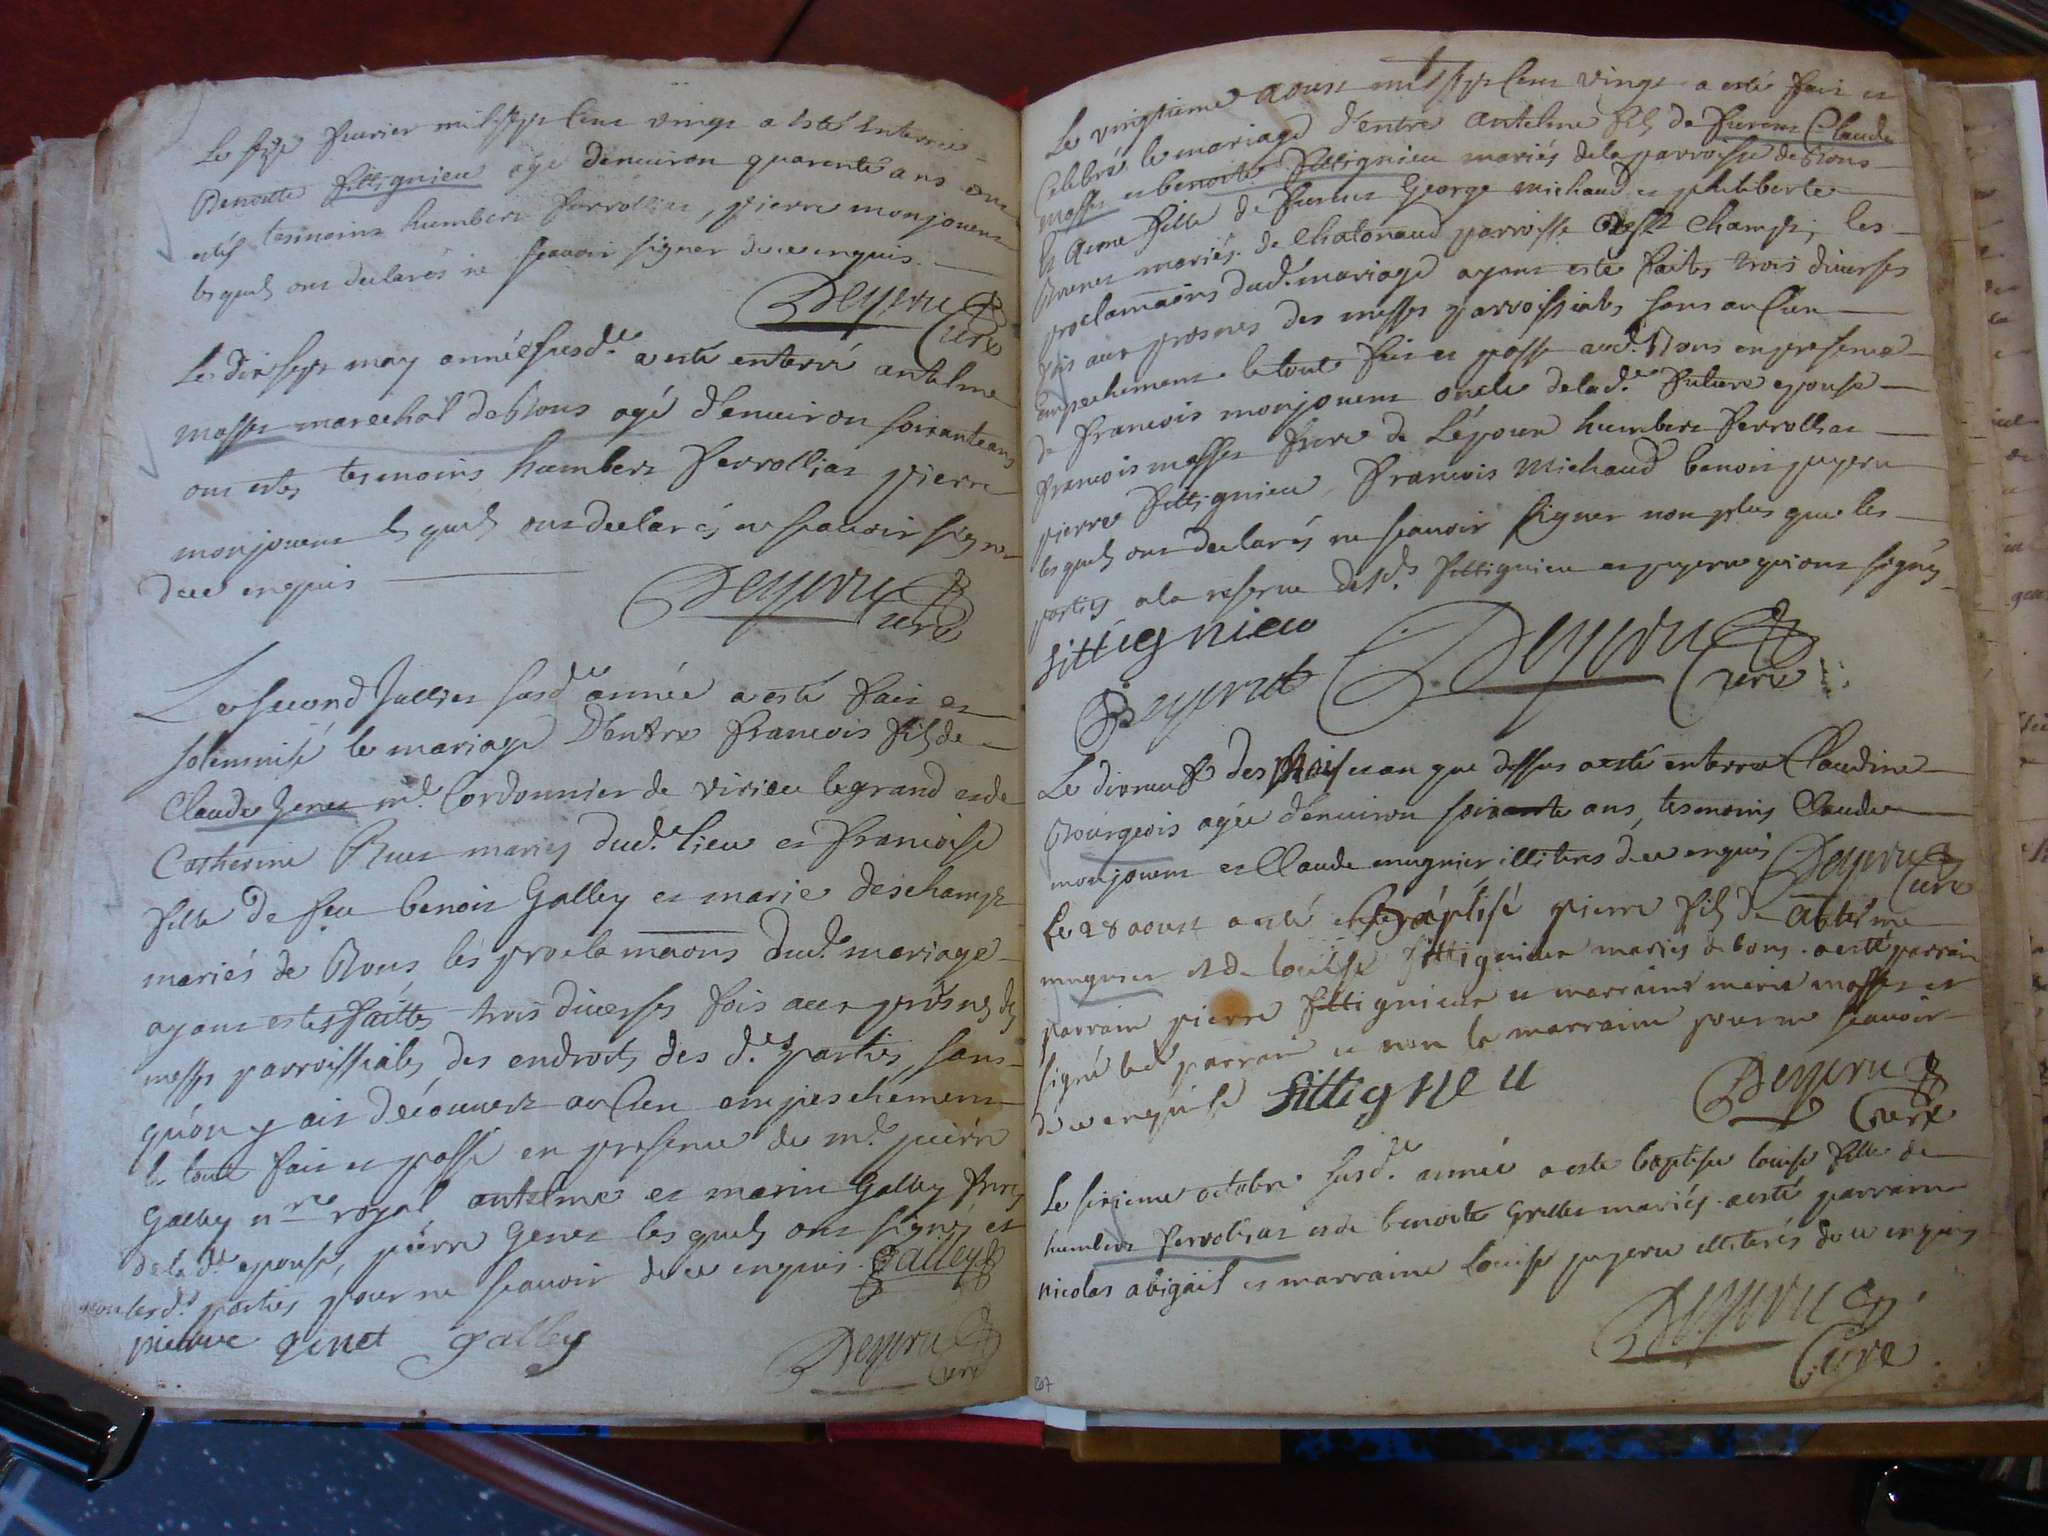 Le seize fevrier mil sept cent vingt a esté enterrée
Benoitte fittignieu agé denuiron quarente ans ont
estés tesmoins humbert ferrolliat, pierre monjouent
les quels ont declarés ne scavoir signer de ce enquis.
Deyperu
Curé
Le dix sept may année susd.e a esté enterré antelme
masset marechal de Bons agé d'enuiron soixante ans
ont estes tesmoins humbert ferrolliat pierre
monjouent les quels ont declarés ne scavoir signer
de ce enquis
Deyperu
Curé
Le second Juillet susd.e année a esté fait et
solemnisé le mariage D'entre francois fils de
Claude Genet m.e Cordonnier de virieu le grand et de
Catherine mariés dud. lieu et francoise
fille de feu benoit Galley et marie deschamps
mariés de Bons, les proclamaons dud. mariage
ayant estes faittes trois diverses fois aux prosnes des
messes parroissiales des endroits des d.es parties, sans
qu'on y ait découvert aucun empeschement
le tout fait et passé en presence de m.e pierre
Galley n.re royal antelme et marin Galley freres
de la d.e epouse, pierre Genet les quels ont signés et
non les d.s parties pour ne scavoir de ce enquis. Galley
pierre genet galley
Deyperu
Curé
Le vingtieme aoust mil sept cent vingt a esté fait et
Celebré le mariage d'entre antelme fils de furent Claude
masset et benoite fittignieu mariés de la parroisse de Bons
et fille de furent George michaud et philiberte
mariés de Chatonaud parroisse Champt, les
proclamaons dud. mariage ayant esté faites trois diverses
fois aux prosnes des messes parroissiales sans aucun
empechement le tout fait et passé aud. Bons en presence
de francois monjouent oncle de la d.e future epouse
francois masset frere de L'époux humbert ferrolliat
pierre fittignieu, francois michaud benoit
les quels ont declarés ne scavoir signer non plus que les
parties a la reserve desd.s fittignieu et qui ont signés
fittignieu
Deyperu
Curé
Le dixneuf des mois et an que dessus a esté enterrée Claudine
Bourgeois agée d'enuiron soixante ans, tesmoins Claude
monjouent et Claude mugnier illiteres de ce enquis Deyperu
Curé
Le 28 aoust a esté baptisé pierre fils de antelme
et de louise fittignieu mariés de bons. a esté parrain
parrain pierre fittignieu et marraine marie masset et
signé led. parrain et non la marraine pour ne scavoir
de ce enquise fittigneu
Deyperu
Curé
Le sixieme octobre susd.e année a este baptisée louise fille de
humbert ferrolliat et de benoite mariés. a esté parrain
nicolas abigail et marraine louise illiterés de ce enquis
Deyperu
Curé
207